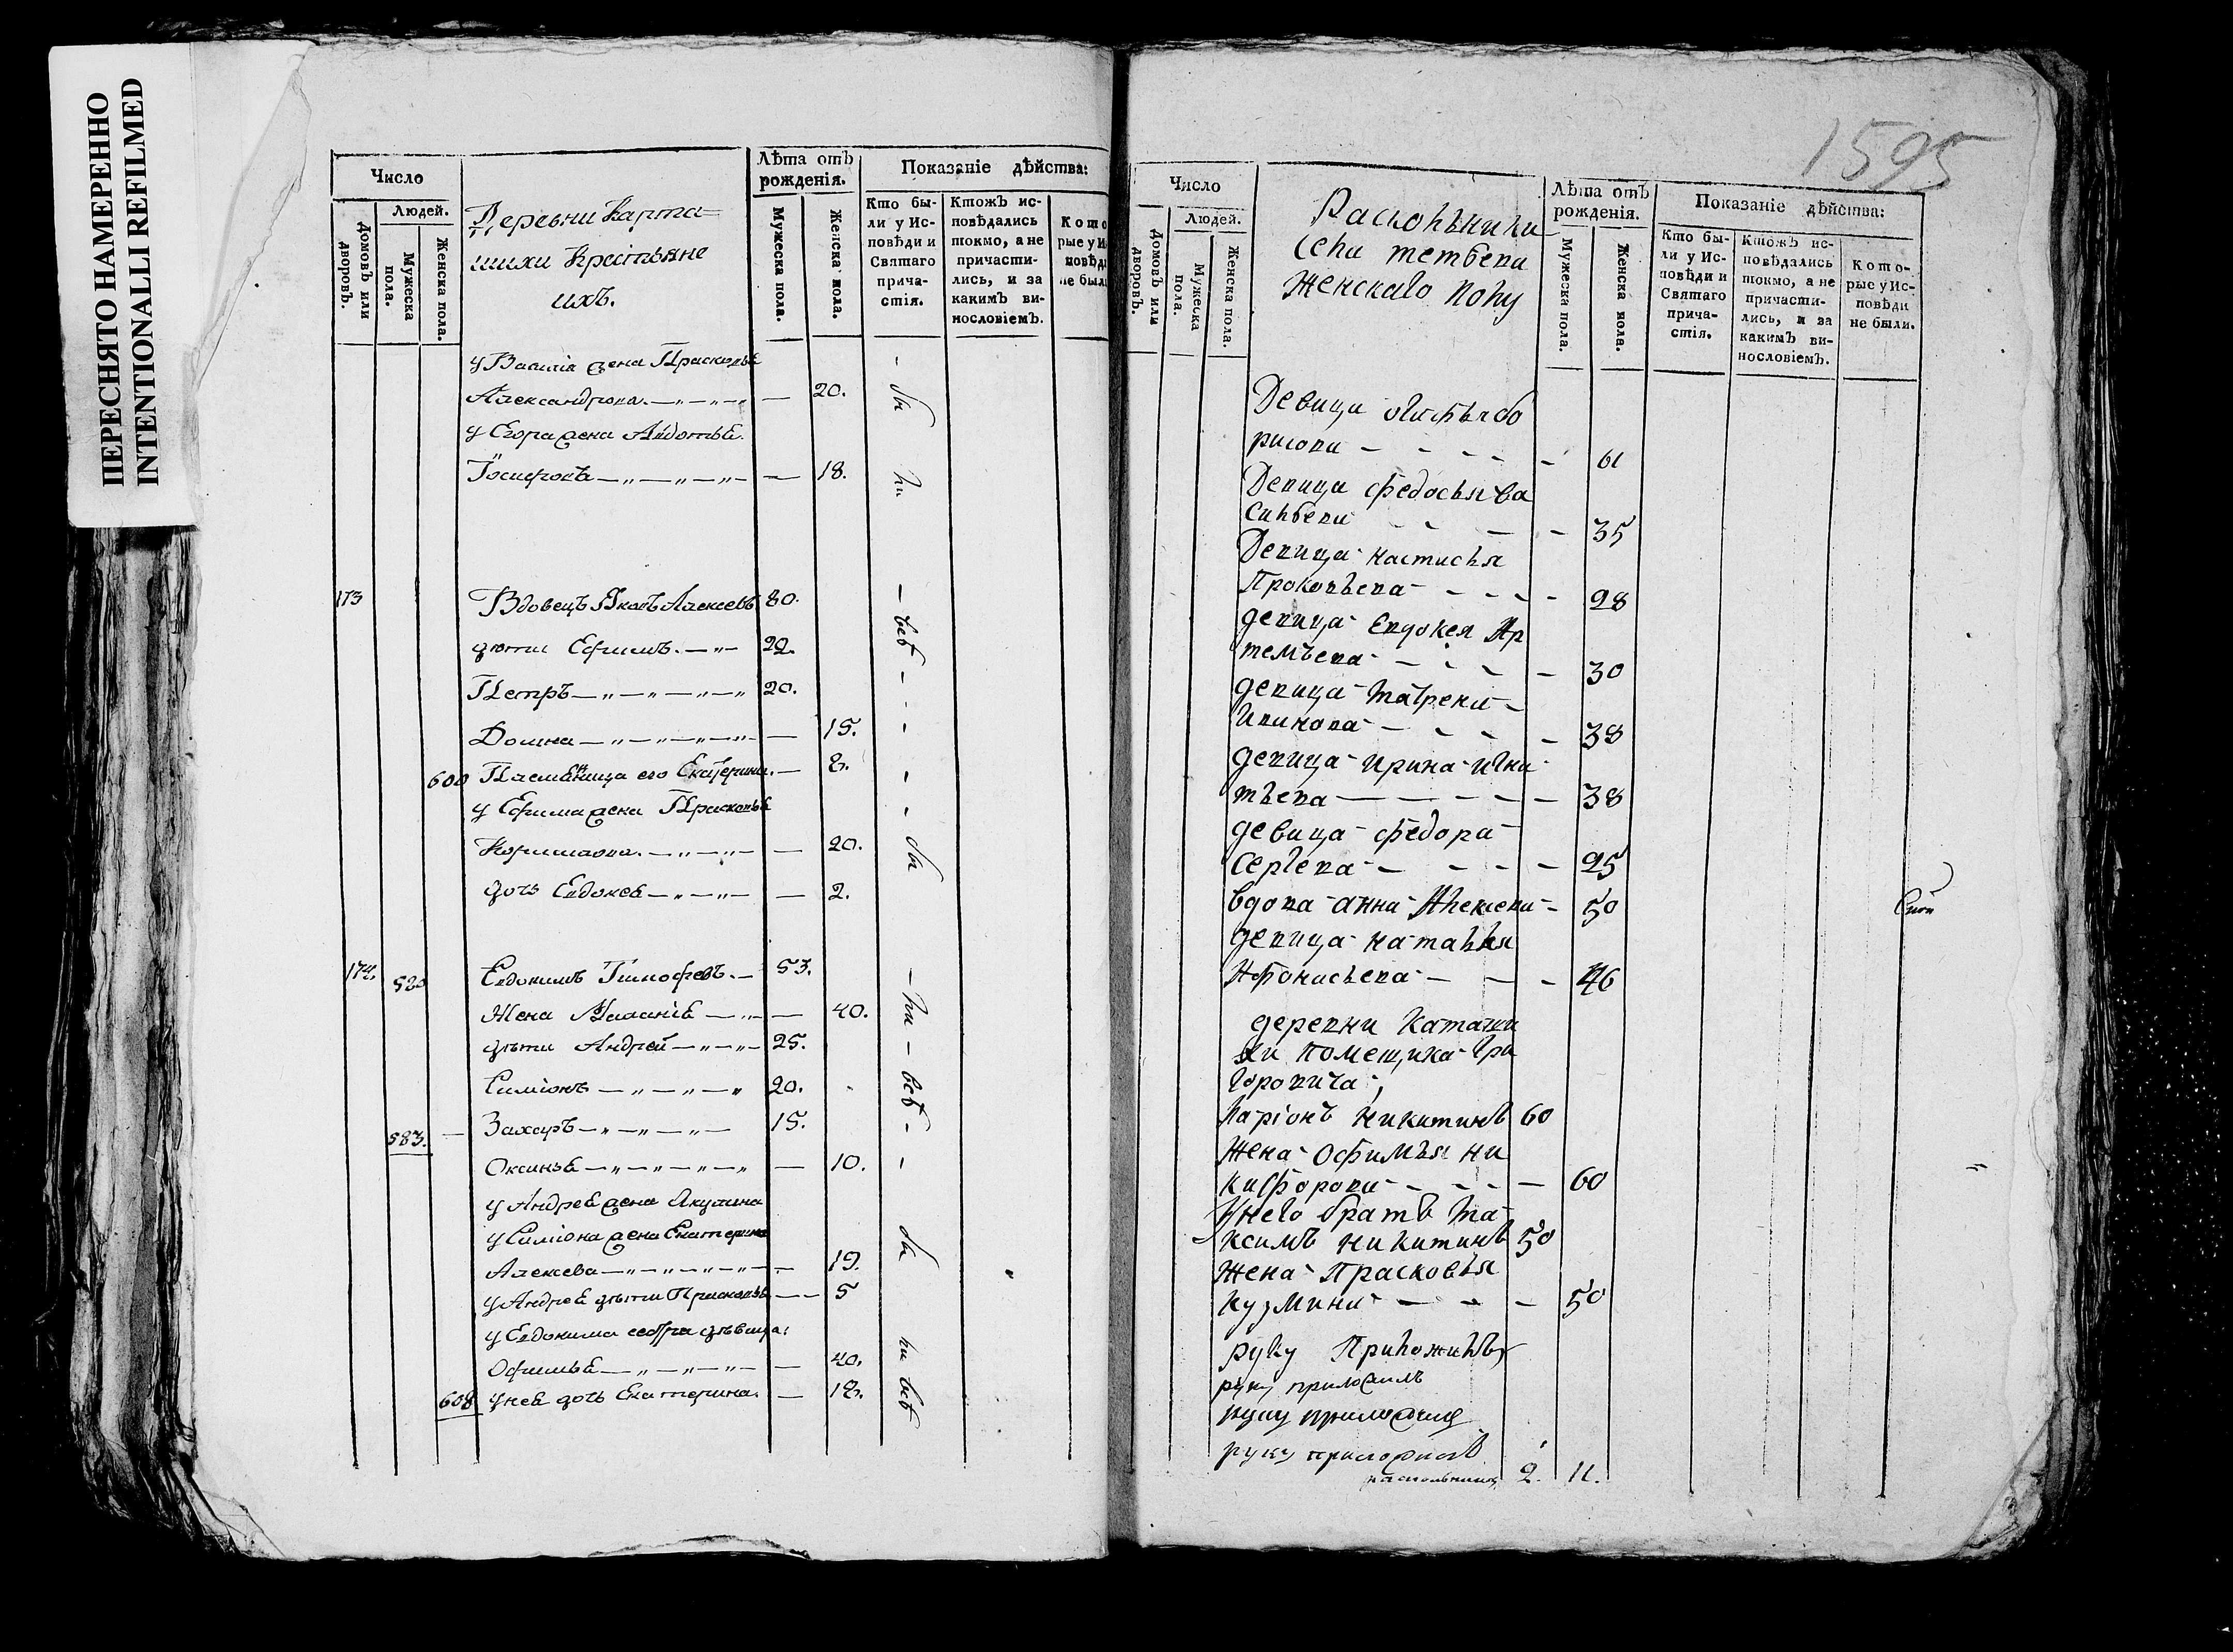 ПЕРЕСНЯТО НАМЕРЕННО
INTENTIONALLI REFILMED
Число
Людей.
Домовъ или дворовъ.
Мужеска пола.
Женска пола.
Деревни Карта=
шихи Крестьяне
ихъ.
Лѣта отъ рожденія.
Мужеска пола.
Женска пола.
Показаніе дѣйства:
Кто были у Исповѣди и Святаго причастія.
Ктожъ исповѣдались токмо, а не причастились, и за какимъ винословіемъ.
у Василія жена Прасковья
Александрова 20.
у Егора жена Авдотья
Іосифова 18.
173 Вдовецъ Яковъ Алексеевъ 80.
дѣти Ефимъ. 22.
Петръ 20.
Домна 15.
600 Племянница его Екатерина. 8.
у Ефима жена Прасковья
20.
дочь Евдокея 2.
174. 580 Евдокимъ Тимофеевъ. 53.
Жена Маланія 40.
дѣти Андрей 25.
Симіонъ 20.
583. Захаръ 15.
Оксинья 10.
у Андрея жена Акулина
у Симіона жена Екатерина
Алексева 19.
у Андрея дѣти Прасковья 5
у Евдокима сестра дѣвица:
Офимья 40.
608 у нея дочь Екатерина. 18.
1595
Число
Людей.
Домовъ или дворовъ.
Мужеска пола.
Женска пола.
Расколники
села
Женскаго полу
Лѣта отъ рожденія.
Мужеска пола.
Женска пола.
Показаніе дѣйства:
Кто были у Исповѣди и Святаго причастія.
Ктожъ исповѣдались токмо, а не причастились, и за какимъ винословіемъ.
Которые у Исповѣди не были.
Девица бо
рисова 61
Девица федосья ва
силвева 35
Девица настасья
Прокопьева 28
девица Евдокея Ар
темъева 30
девица матрена
Иванова 38
девица ирина игна
тьева 38
девица федора
Сергева 25
вдова анна Алексева 50
девица наталья
Афонасьева 46
деревни
помещика гри
горовича,
ларіонъ никитинъ 60
Жена Офимъя ни
кифорова 60
У него братъ ма
ксимъ никитинъ 50
Жена Прасковья
кузмина 50
руку приложилъ
руку приложилъ
руку приложилъ
руку приложилъ
2. 11.